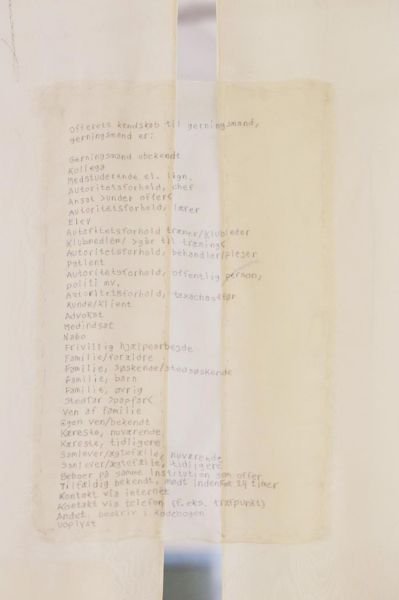 Offerets kendskab til gerningsmand,
gerningsmand er:
Gerningsmand ubekendt
Kollega
Medstuderende el. lign.
Autoritetsforhold, chef
Ansat >under offer<
Autoritetsforhold, lærer
Elev
Autoritetsforhold træner/klubleder
Klubmedlem/ >går til træning<
Autoritetsforhold, behandler/plejer
Patient
Autoritetsforhold, offentlig person,
politi mv.
Autoritetsforhold, taxachauffør
Kunde/klient
Advokat
Medindsat
Nabo
Frivillig hjælpearbejde
Familie/forældre
Familie, søskende/stedsøskende
Familie, barn
Familie, øvrig
Stedfar >papfar<
Ven af familie
Egen ven/bekendt
Kæreste, nuværende
Kæreste, tidligere
Samlever/ægtefælle, nuværende
Samlever/ægtefælle, tidligere
Beboer på samme institution som offer
Tilfældig bekendt, mødt indenfor 24 timer
Kontakt via internet
Kontakt via telefon (f.eks. træfpunkt)
Andet, beskriv i Kodebogen
Uoplyst